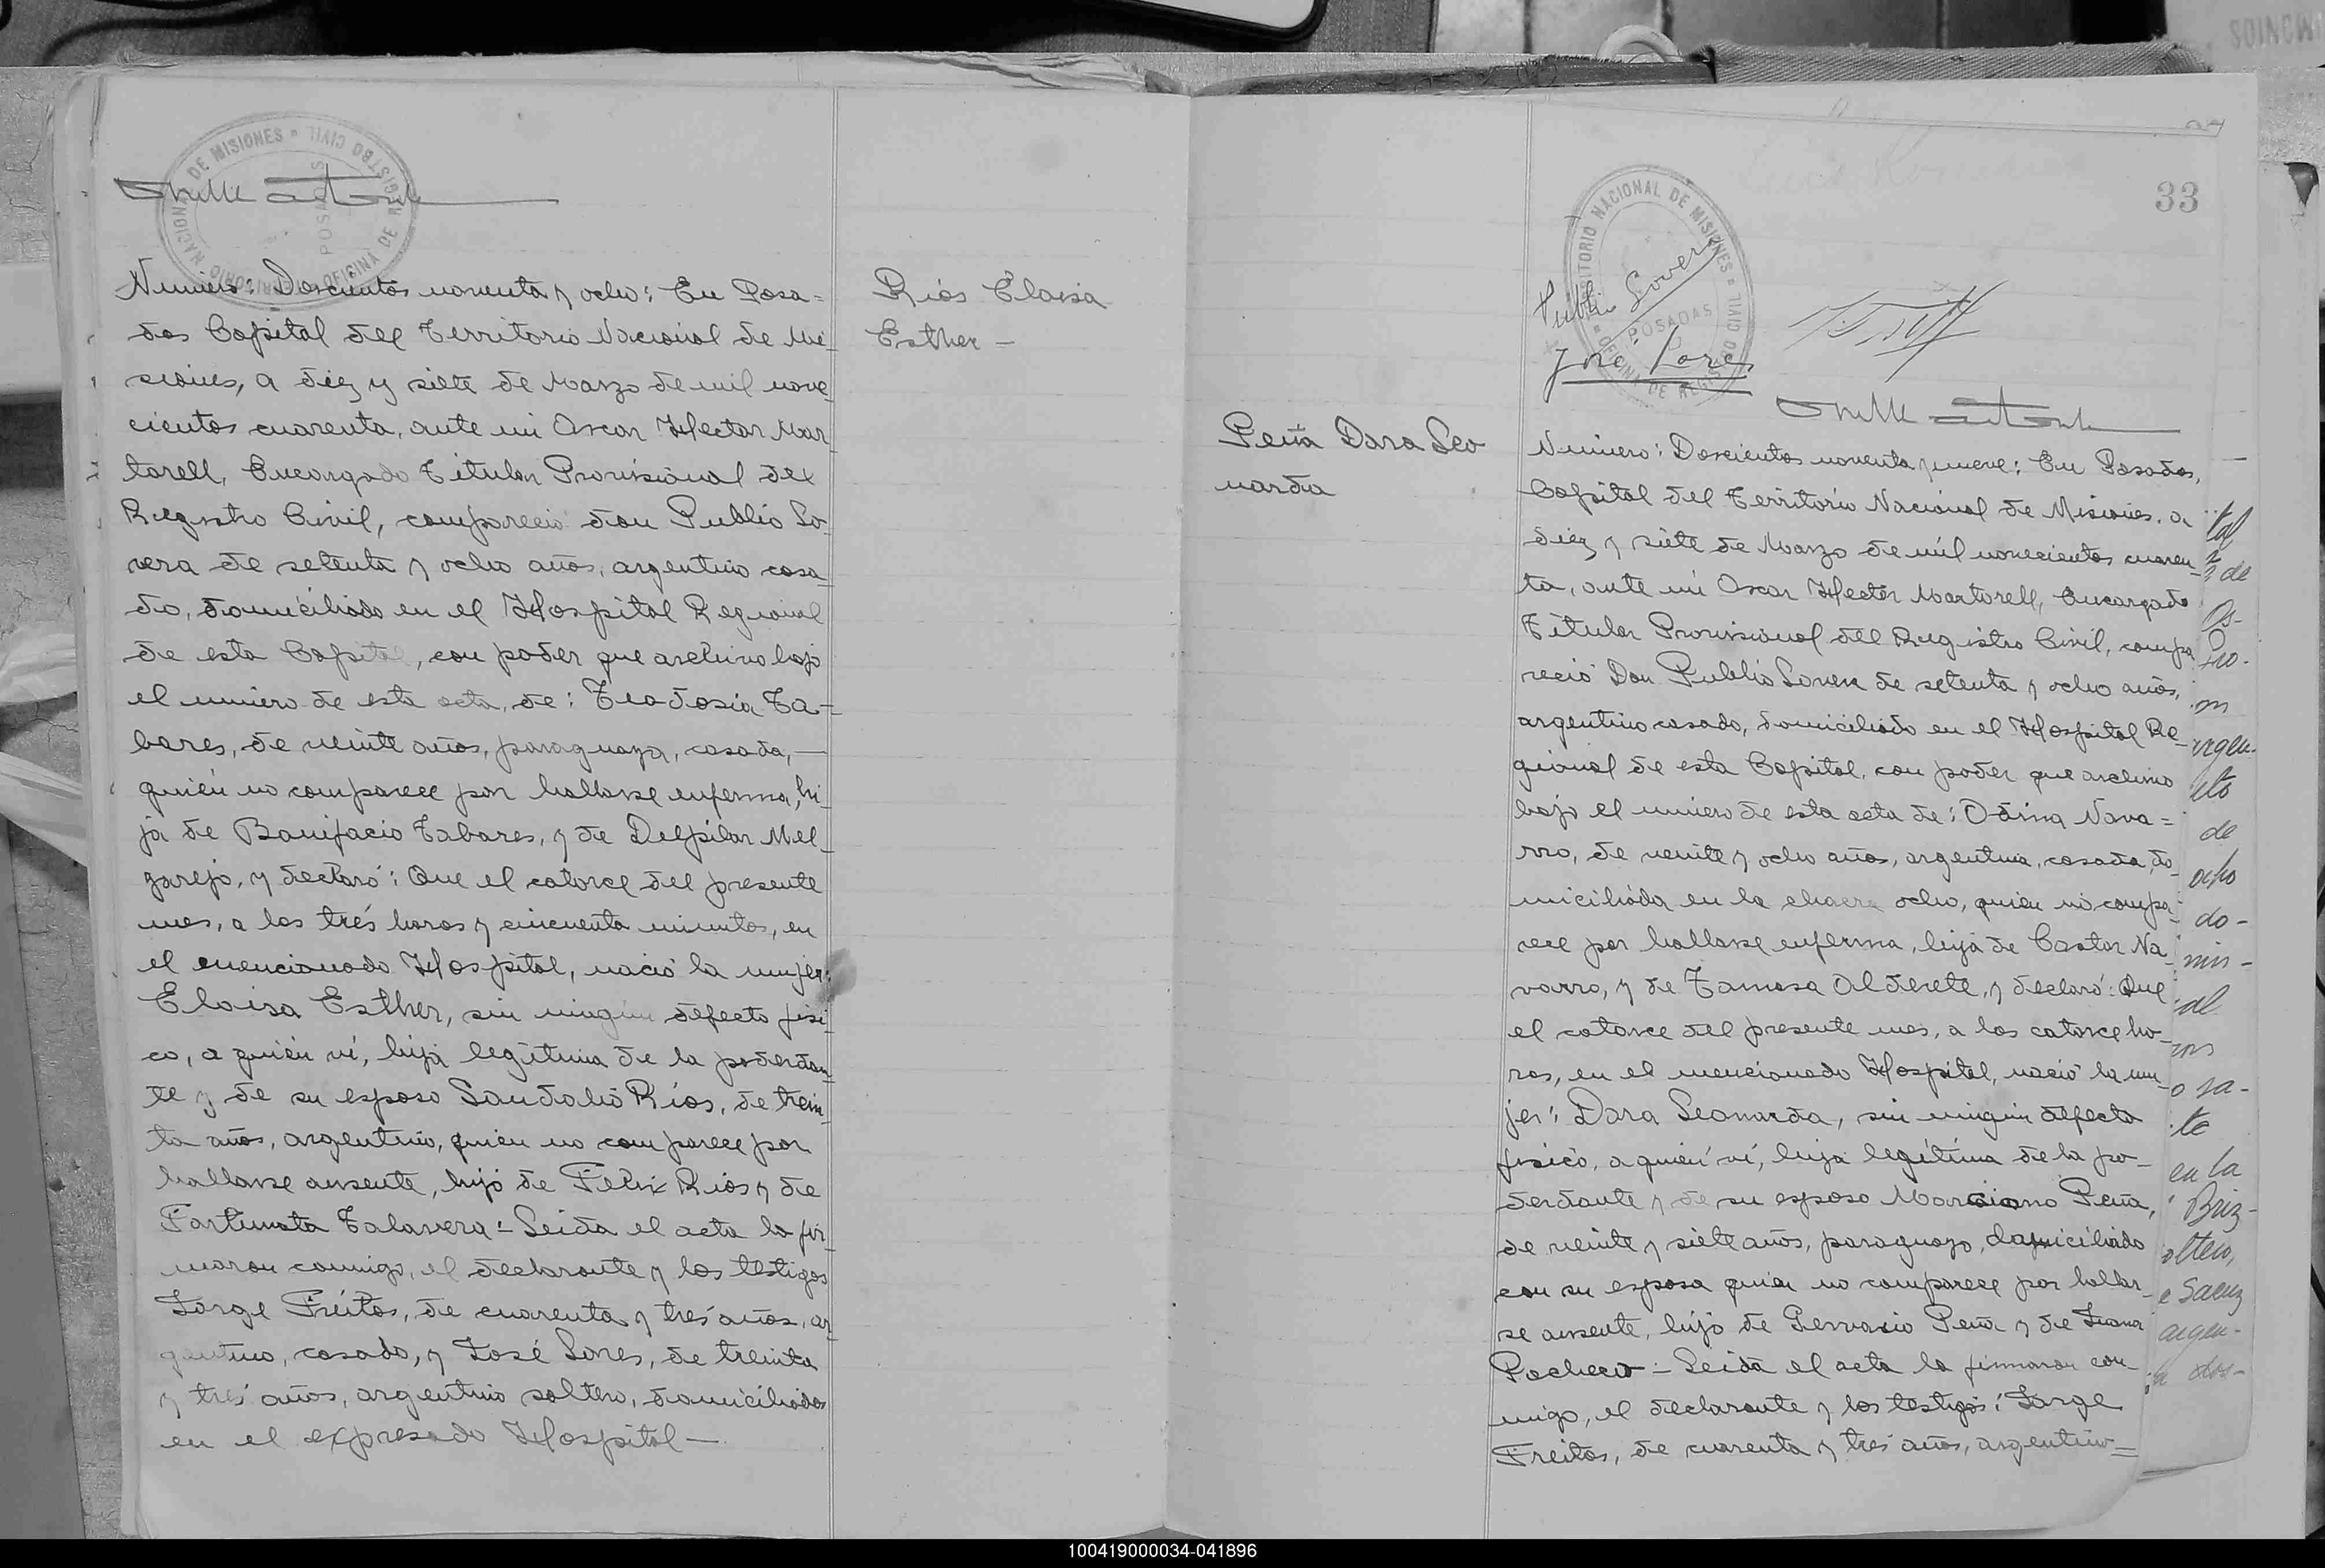 TERRITORIO NACIONAL DE MISIONES
OFICINA DE REGISTRO CIVIL
POSADAS
Numero: Doscientos noventa y ocho: En Posa=
das Capital del Territorio Nacional de Mi
siones, a diez y siete de Marzo de mil nove
cientos cuarenta, ante mi Oscar Hector Mar
torell, Encargado Titular Provisional del
Registro Civil, compareció don Publio Lo
vera de setenta y ocho años, argentino casa
do, domiciliado en el Hospital Regional
de esta Capital, con poder que archivo bajo
el numero de esta acta, de: Teodosia Ta-
bares, de veinte años, paraguaya, casada, —
quién no comparece por hallarse enferma, hi
ja de Bonifacio Tabares, y de Delpilar Mel
garejo, y declaró: Que el catorce del presente
mes, a las trés horas y cincuenta minutos, en
el mencionado Hospital, nació la mujer:
Eloisa Esther, sin ningún defecto fisi
co, a quién ví, hija legitima de la poderdan
te y de su esposo Sandalio Rios, de trein
ta años, argentino, quien no comparece por
hallarse ausente, hijo de Felix Rios y de
Fortunata Talavera:- Leida el acta la fir
maron conmigo, el declarante y los testigos
Jorge Freitas, de cuarenta y trés años, ar
gentino, casado, y José Lores, de treinta
y trés años, argentino soltero, domiciliados
en el expresado Hospital —
Rios Eloisa
Esther —
33
TERRITORIO NACIONAL DE MISIONES
OFICINA DE REGISTRO CIVIL
POSADAS
Publio Lovera
José Lores
Peña Dora Leo
narda
Numero: Doscientos noventa y nueve: En Posadas,
Capital del Territorio Nacional de Misiones, a
diez y siete de Marzo de mil novecientos cuaren-
ta, ante mi Oscar Hector Martorell, Encargado
Titular Provisional del Registro Civil, compa
reció Don Publio Lovera de setenta y ocho años,
argentino casado, domiciliado en el Hospital Re-
gional de esta Capital, con poder que archivo
bajo el numero de esta acta de: Odina Nava=
rro, de veinte y ocho años, argentina, casada, do
miciliada en la chacra ocho, quién no compa
rece por hallarse enferma, hija de Castor Na
varro, y de Tamasa Alderete, y declaró: Que
el catorce del presente mes, a las catorce ho-
ras, en el mencionado Hospital, nació la mu-
jer: Dora Leonarda, sin ningún defecto
fisico, a quién ví, hija legítima de la po-
derdante y de su esposo Marciano Peña,
de veinte y siete años, paraguayo, domiciliado
con su esposa quien no comparece por hallar
se ausente, hijo de Gervasio Peña y de Juana
Pacheco:- Leida el acta la firmaron con-
migo, el declarante y los testigos: Jorge
Freitas, de cuarenta y tres años, argentino=
tal
de
Os-
Pro-
argen-
de
ocho
do-
al
te
en la
Briz-
oltero,
e Saenz
argen-
dos-
100419000034-041896